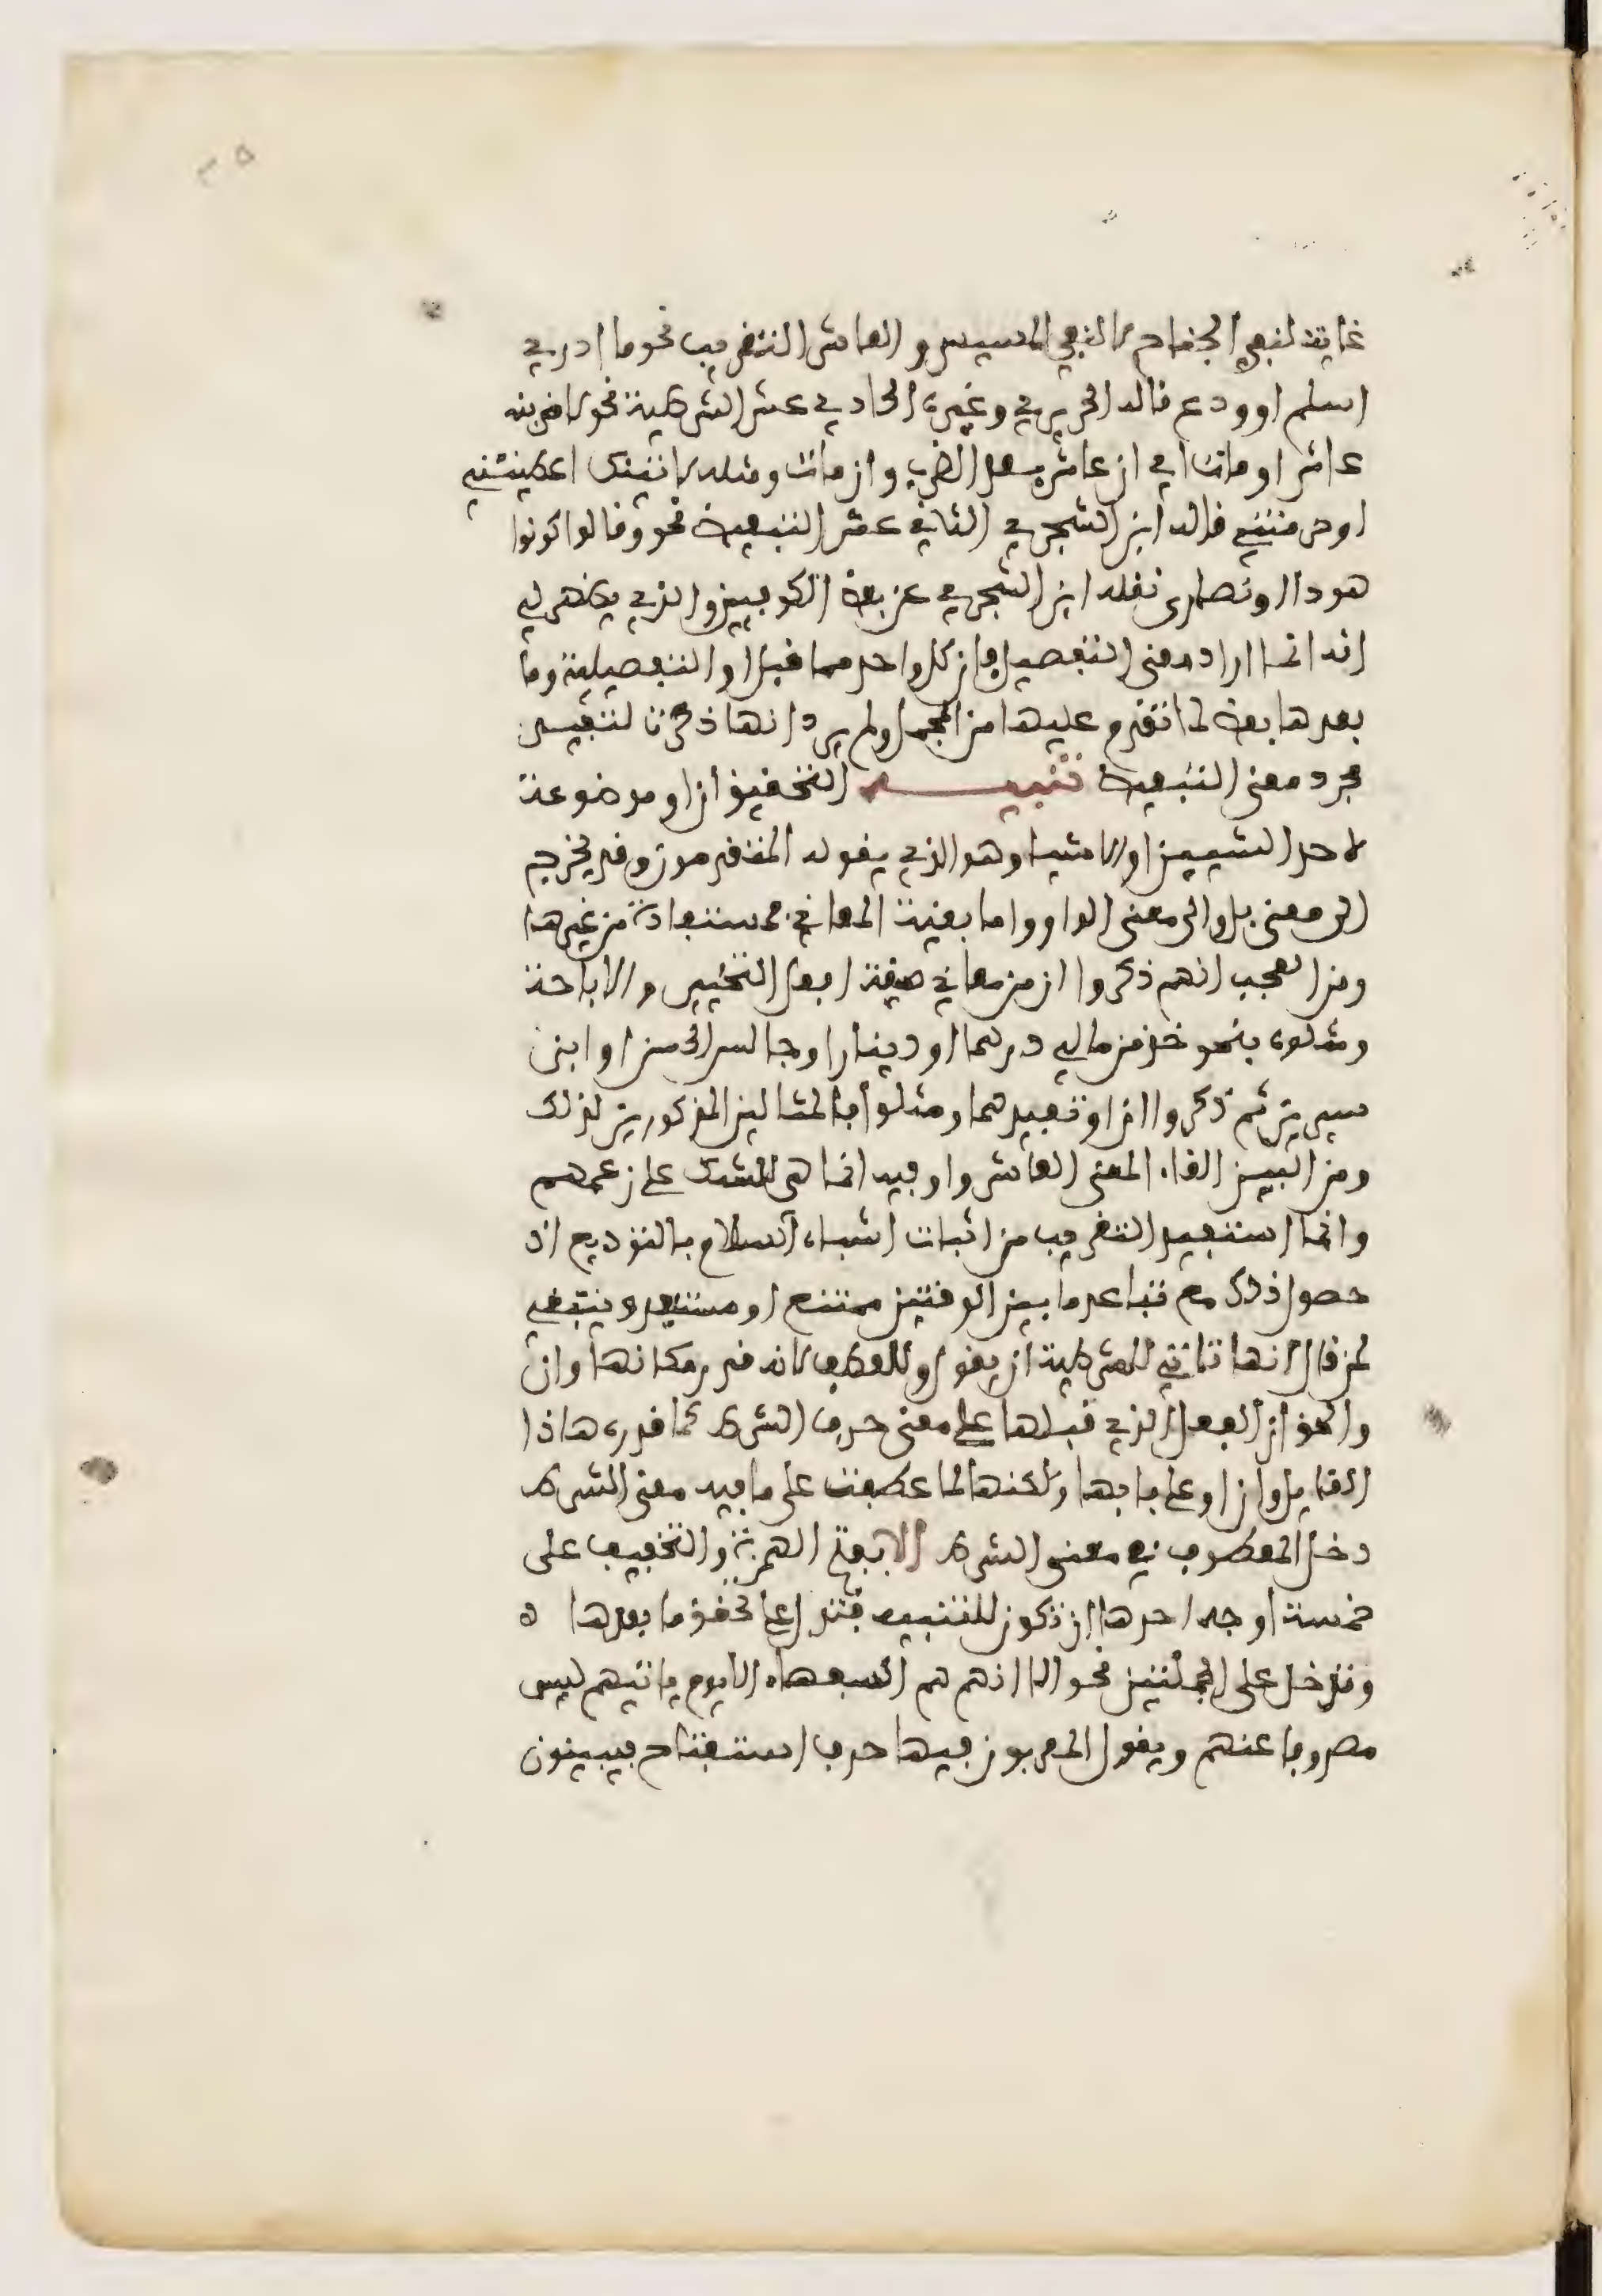 غاية لنفي الجناح لا لنفي المسيس والعاشر التقريب نحو ما ادري
اسلم او ودع قاله الحريري وغيره الحادي عشر الشرطية نحو لاضربنه
عاش او مات اي ان عاش بعد الضرب وان مات ومثله لاتينك اعطيتني
او حرمتني قاله ابن الشجري الثاني عشر التبعيض نحو وقالوا كونوا
هودا او نصارى نقله ابن الشجري عن بعض الكوفيين والذي يظهر لي
انه انما اراد معنى التفصيل فان كل واحد مما قبل او التفصيلية وما
بعدها بعض لما تقدم عليها من المجمل ولم يرد انها ذكرت لتفيد
مجرد معنى التبعيض تنبيه التحقيق ان او موضوعة
لاحد الشيين او الاشيا وهو الذي يقوله المتقدمون وقد يخرج
الى معنى بل والى معنى الواو واما بقية المعاني فمستفادة من غيرها
ومن العجب انهم ذكروا ان من معاني صيغة افعل التخيير والاباحة
ومثلوه بنحو خذ من مالي درهما او دينارا وجالس الحسن او ابن
سيرين ثم ذكروا ان او تفيدهما ومثلوا بالمثالين المذكورين لذلك
ومن البين الفاء المعنى العاشر واو فيه انما هي للشك على زعمهم
وانما استفيد التقريب من اثبات اشتباه السلام بالتوديع اذ
حصول ذلك مع تباعد ما بين الوقتين ممتنع او مستبعد وينبغي
لمن قال انها تاتي للشرطية ان يقول وللعطف لانه قدر مكانها وان
والحق ان الفعل الذي قبلها على معنى حرف الشرط كما قدره هاذا
القايل وان او على بابها ولكنها لما عطفت على ما فيه معنى الشرط
دخل المعطوف في معنى الشرط الا بفتح الهمزة والتخفيف على
خمسة اوجه احدها ان تكون للتنبيه فتدل على تحقق ما بعدها ه
وتدخل على الجملتين نحو الا انهم هم السفهاء الا يوم ياتيهم ليس
مصروفا عنهم ويقول المعربون فيها حرف استفتاح فيبينون